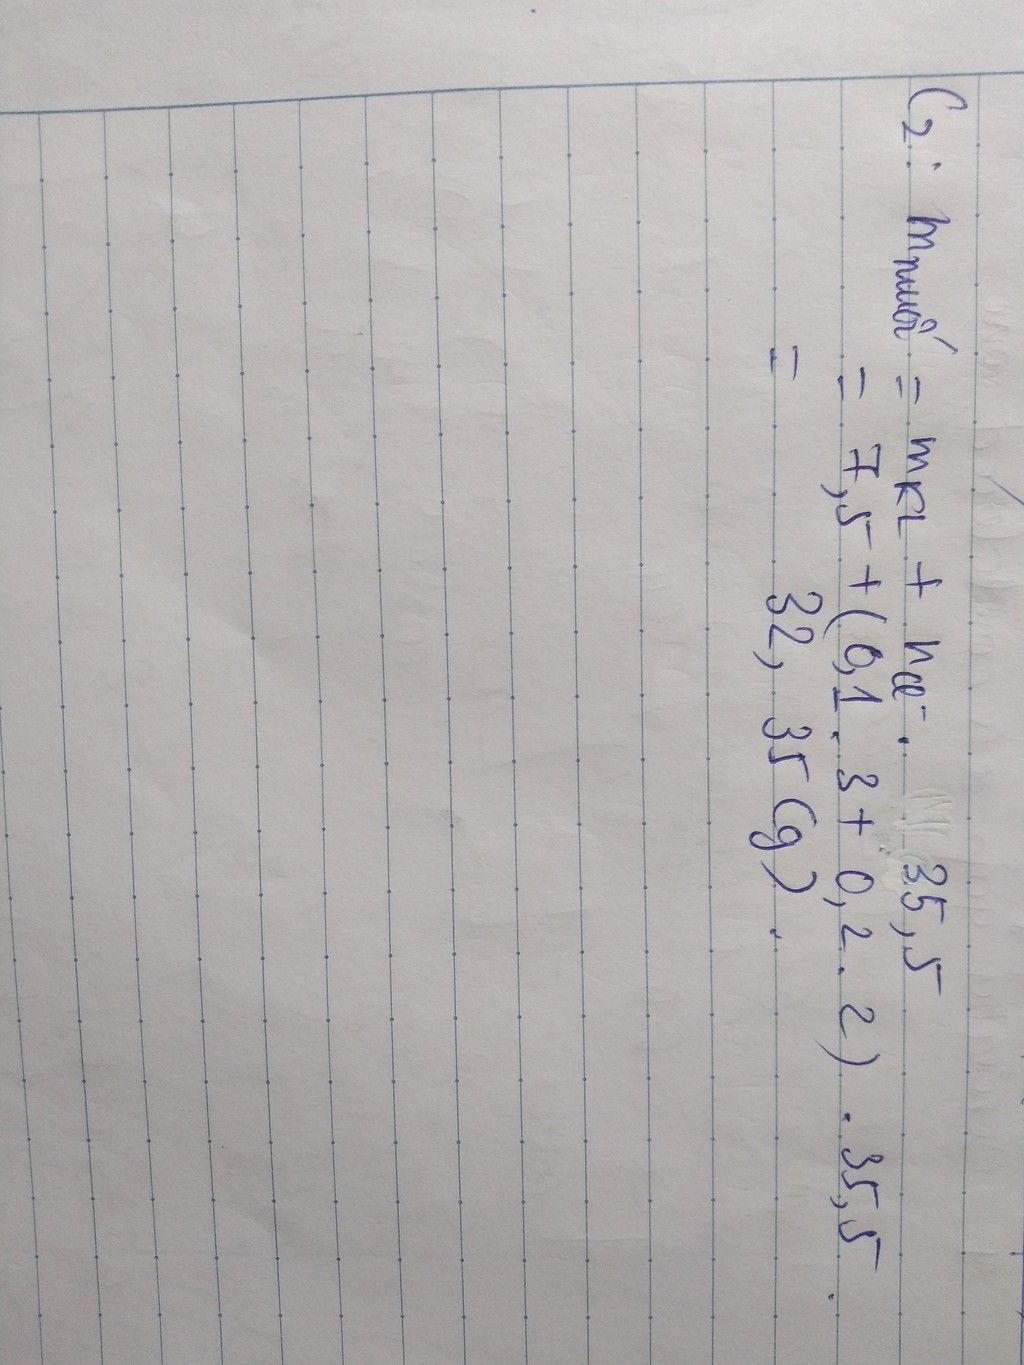 C2: mmuối = mKL + nCl⁻ . 35,5
= 7,5 + (0,1 . 3 + 0,2 . 2) . 35,5
= 32,35 (g).